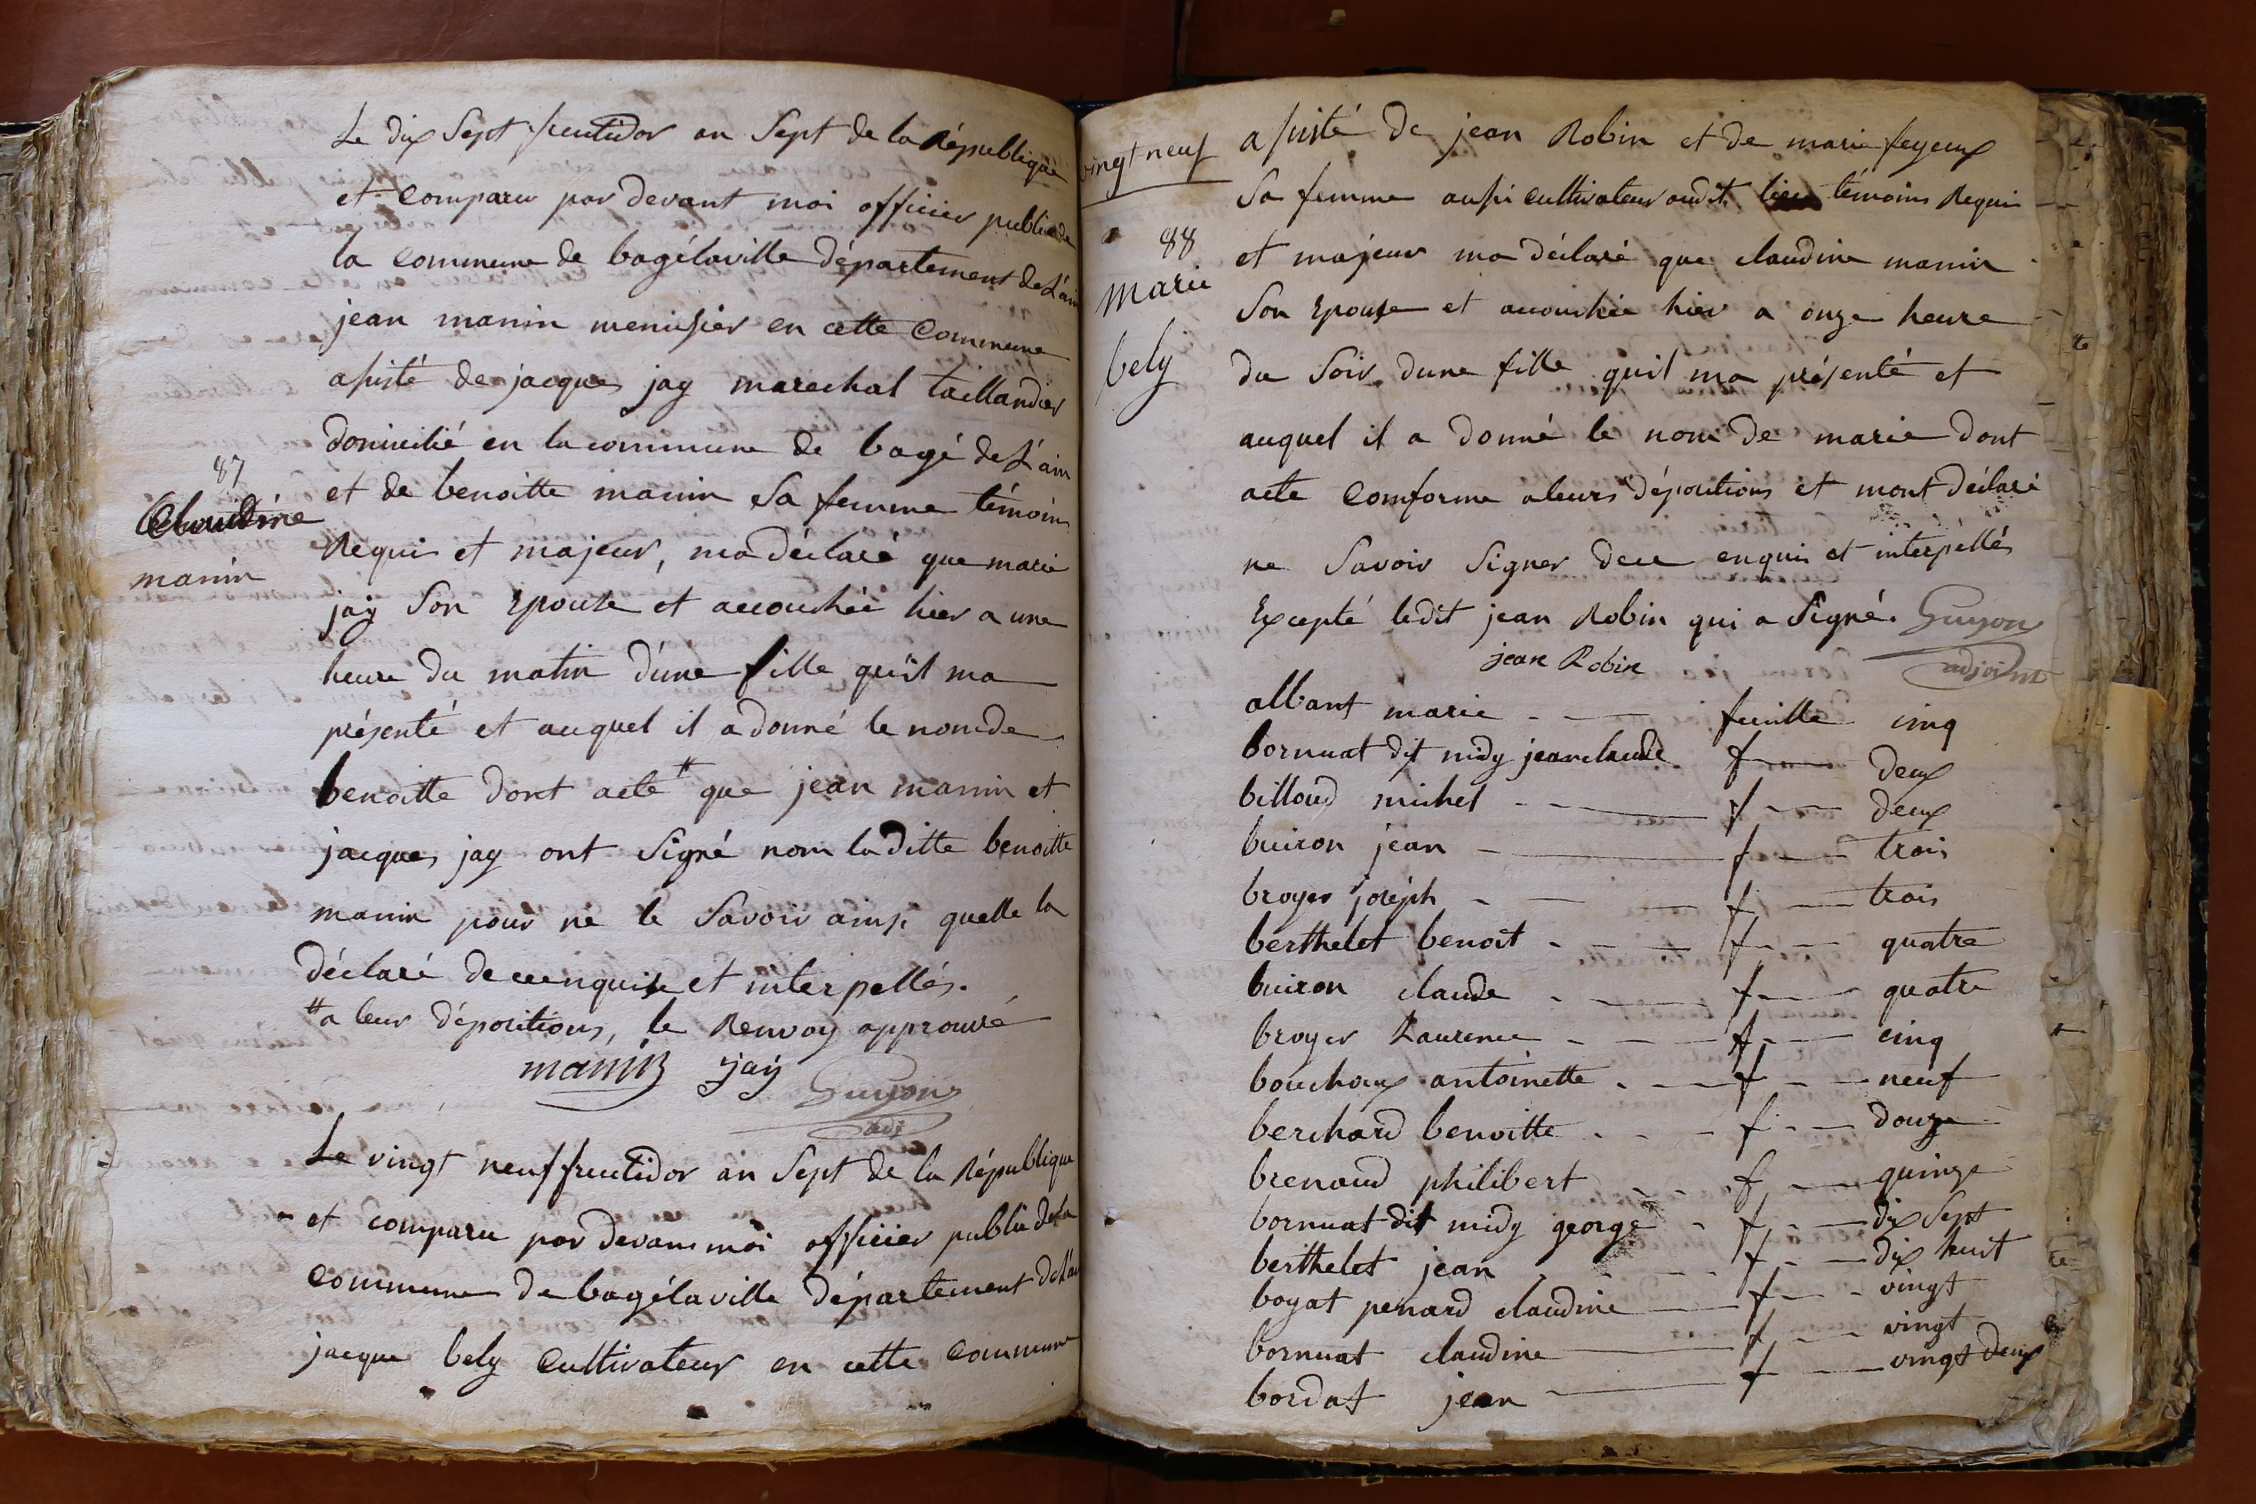 Le dix Sept fructidor an Sept de la République
et comparu par devant moi officier public de
la commune de bagélaville département de L'ain
jean manin menuisier en cette Commune
assisté de jacques jay marechal taillandier
domicilié en la commune de bagé de L'ain
87
Claudine
manin
et de benoitte manin Sa femme témoins
Requis et majeur, ma déclaré que marie
jay Son Epouse et accouchée hier a une
heure du matin d'une fille qu'il ma
présenté et auquel il a donné le nom de
benoitte dont acte # que jean manin et
jacques jay ont Signé nom la ditte benoitte
manin pour ne le Savoir ainsi quelle la
déclaré de ce enquise et interpellés.
# a leur dépositions, le Renvoy approuvé
manin jay
Guyon
adj
Le vingt neuf fructidor an Sept de la République
et comparu par devant moi officier public de la
commune de bagélaville département de L'ain
jacque bely Cultivateur en cette commune
vingt neuf
88
marie
bely
assisté de jean Robin et de marie feyeux
Sa femme aussi cultivateur audit lieu témoins Requis
et majeur ma déclaré que claudine manin
Son Epouse et accouchée hier a onze heure
du Soir dune fille quil ma présenté et
auquel il a donné le nom de marie dont
acte Comforme a leurs dépositions et mont déclaré
ne Savoir Signer de ce enquis et interpéllés
Excepté ledit jean Robin qui a Signé. Guyon
jean Robin
adjoint
albant marie feuille cinq
bornuat dit midy jean claude f deux
billoud michel f deux
buiron jean f trois
broyer joséph f trois
berthelet benoit f quatre
buiron claude f quatre
broyer Laurence f cinq
bouchoux antoinette f neuf
berchard benoitte f douze
brenaud philibert f quinze
bornuat dit midy george f dix Sept
berthelet jean f dix huit
boyat penard claudine f vingt
bornuat claudine f vingt
bordat jean f vingt deux